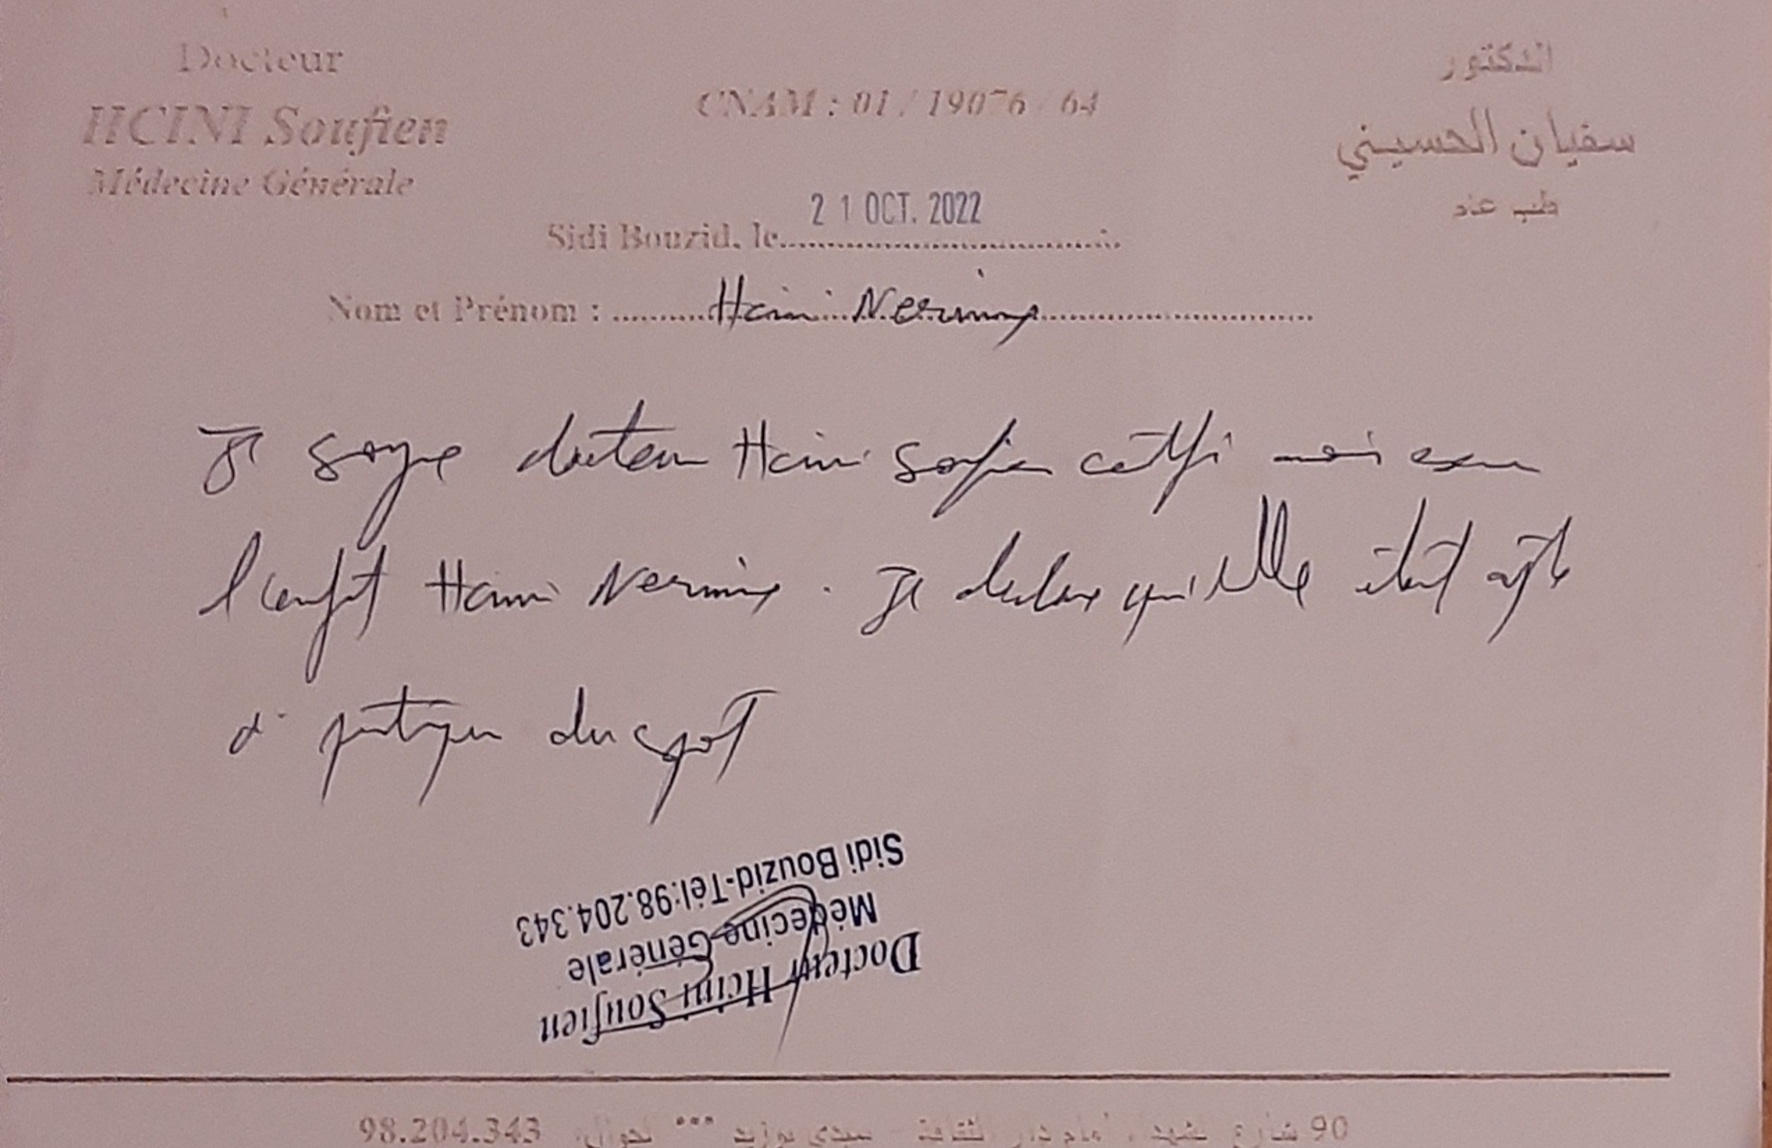 Docteur
HCINI Soufien
Médecine Générale
CNAM : 01 / 19076 / 64
الدكتور
سفيان الحسيني
طب عام
Sidi Bouzid, le 21 OCT. 2022
Nom et Prénom : Hcini Nermine
Je soigne docteur Hcini Soufien certifie avoir examiné
l'enfant Hcini Nermine . Je déclare qu'elle était apte
à pratiquer du sport
Docteur Hcini Soufien
Médecine Générale
Sidi Bouzid-Tél:98.204.343
90 شارع الشهداء أمام دار الثقافة - سيدي بوزيد *** الجوال: 98.204.343